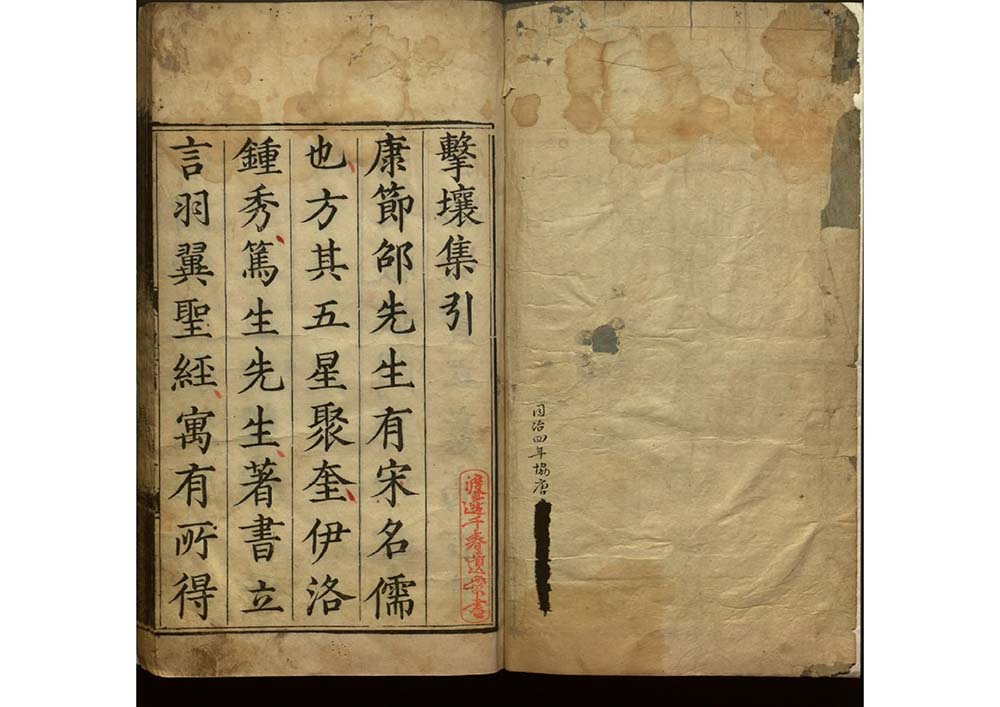 同治四年協唐
擊壤集引
康節邵先生有宋名儒
也方其五星聚奎伊洛
鍾秀篤生先生著書立
言羽翼聖經寓有所得
渡邊千春遺書